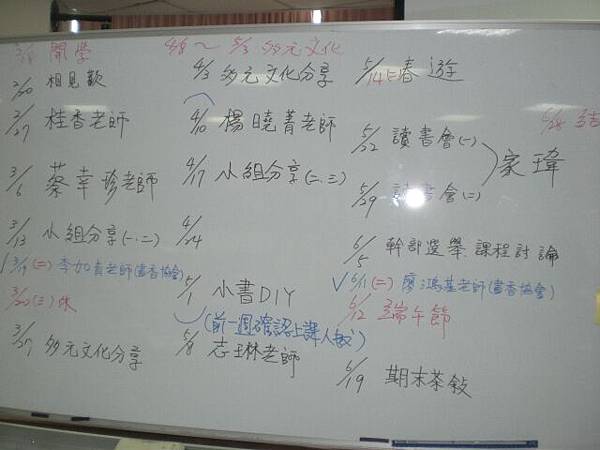 2/18 開學
2/20 相見歡
2/27 桂香老師
3/6 蔡幸珍老師
3/13 小組分享(一、二)
√3/19(二)李加青老師(書香協會)
3/20(三)休
3/27 多元文化分享
4/3~5/3 多元文化
4/3 多元文化分享
4/10 楊曉菁老師
4/17 小組分享(二、三)
4/24
5/1 小書DIY
(前一週確認上課人數)
5/8 志琳老師
5/14(二)春遊
5/22 讀書會(一)
5/29 讀書會(二)
家瑋
6/5 幹部選舉.課程討論
√6/11(二)廖鴻基老師(書香協會)
6/12 端午節
6/19 期末茶敘
結